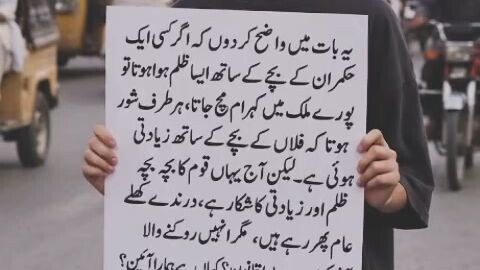 یہ بات میں واضح کر دوں کہ اگر کسی ایک
حکمران کے بچے کے ساتھ ایسا ظلم ہوا ہوتا تو
پورے ملک میں کہرام مچ جاتا، ہر طرف شور
ہوتا کہ فلاں کے بچے کے ساتھ زیادتی
ہوئی ہے۔ لیکن آج یہاں قوم کا بچہ بچہ
ظلم اور زیادتی کا شکار ہے، درندے کھلے
عام پھر رہے ہیں، مگر انہیں روکنے والا
قانون؟ کہاں ہے ہمارا آئین؟